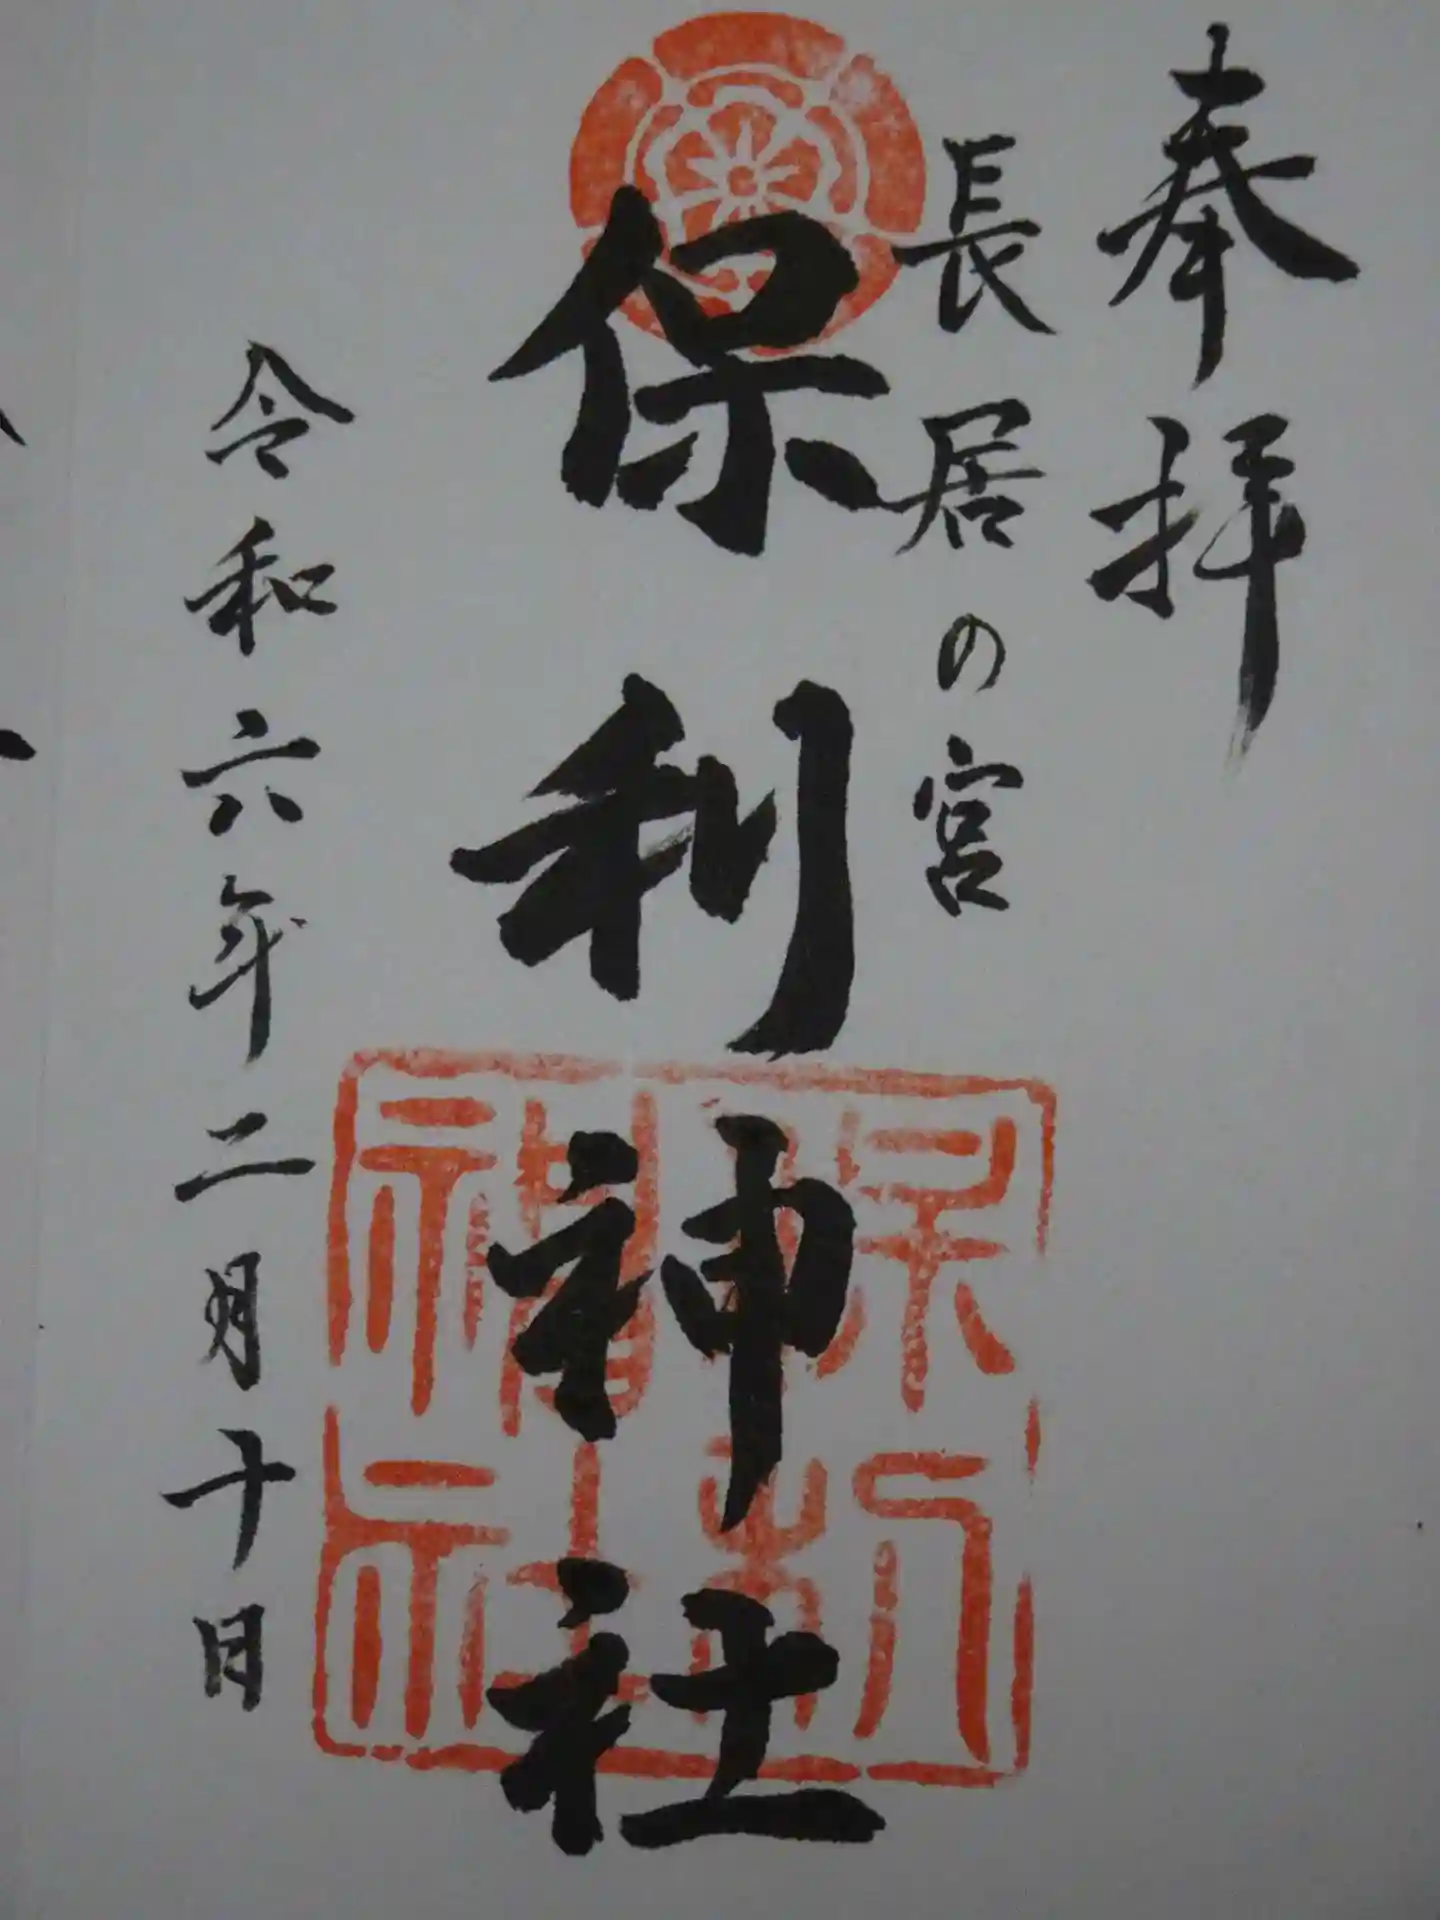 奉拝
長居の宮
保利神社
令和六年二月十日
保利神社